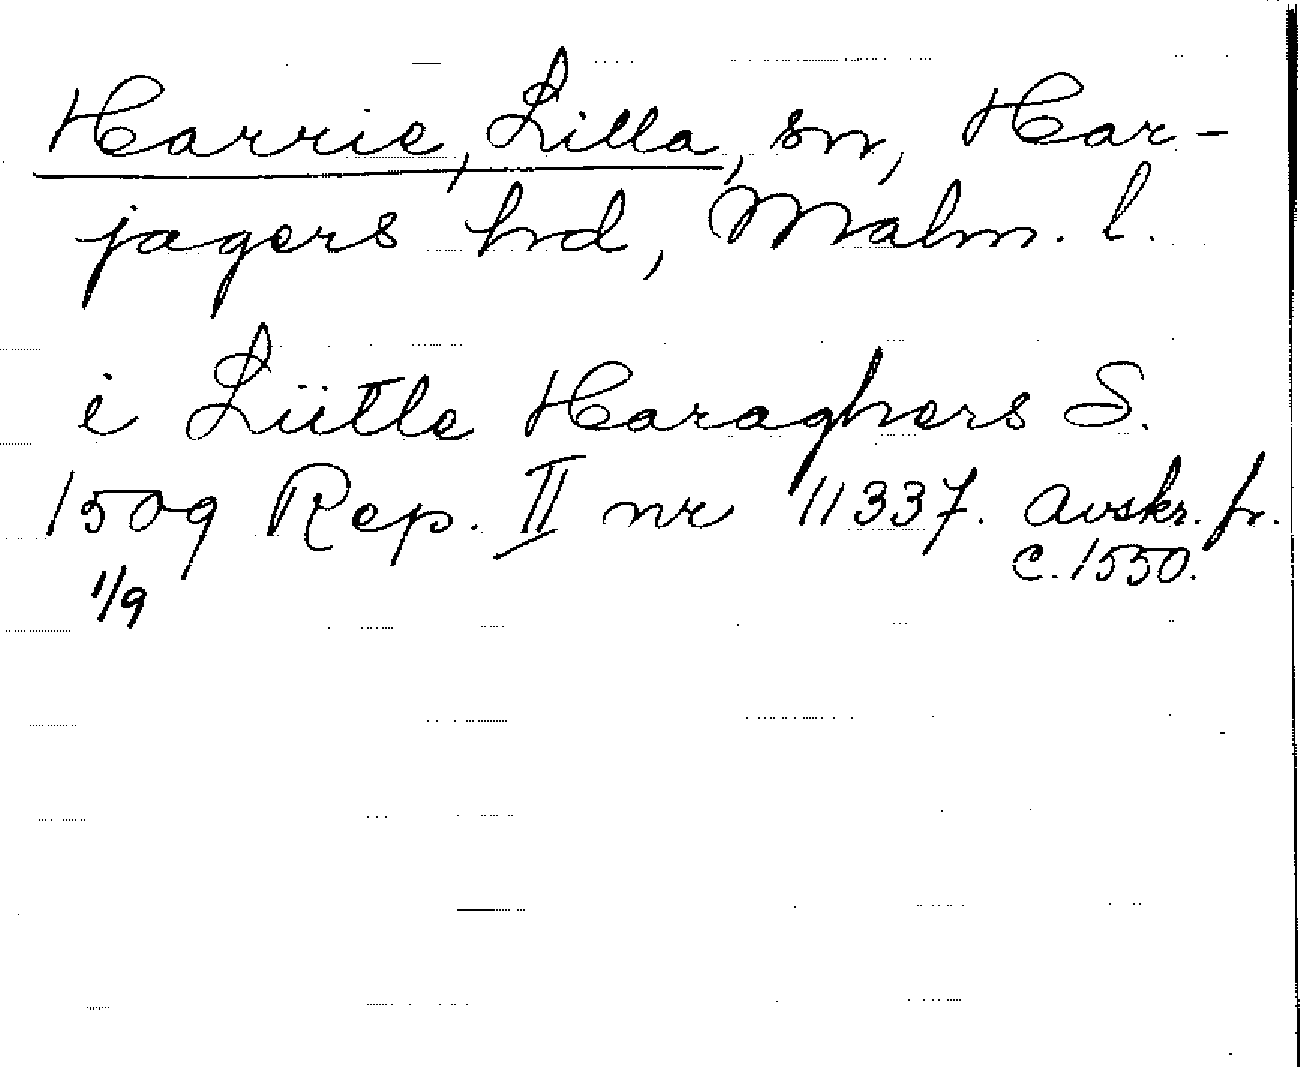 Harrie, Lilla, sn, Har-
jagers hd, Malm. l.
i Lütle Haraghers S.
1509 Rep. II nr 11337. Avskr. fr.
1/9 c. 1550.